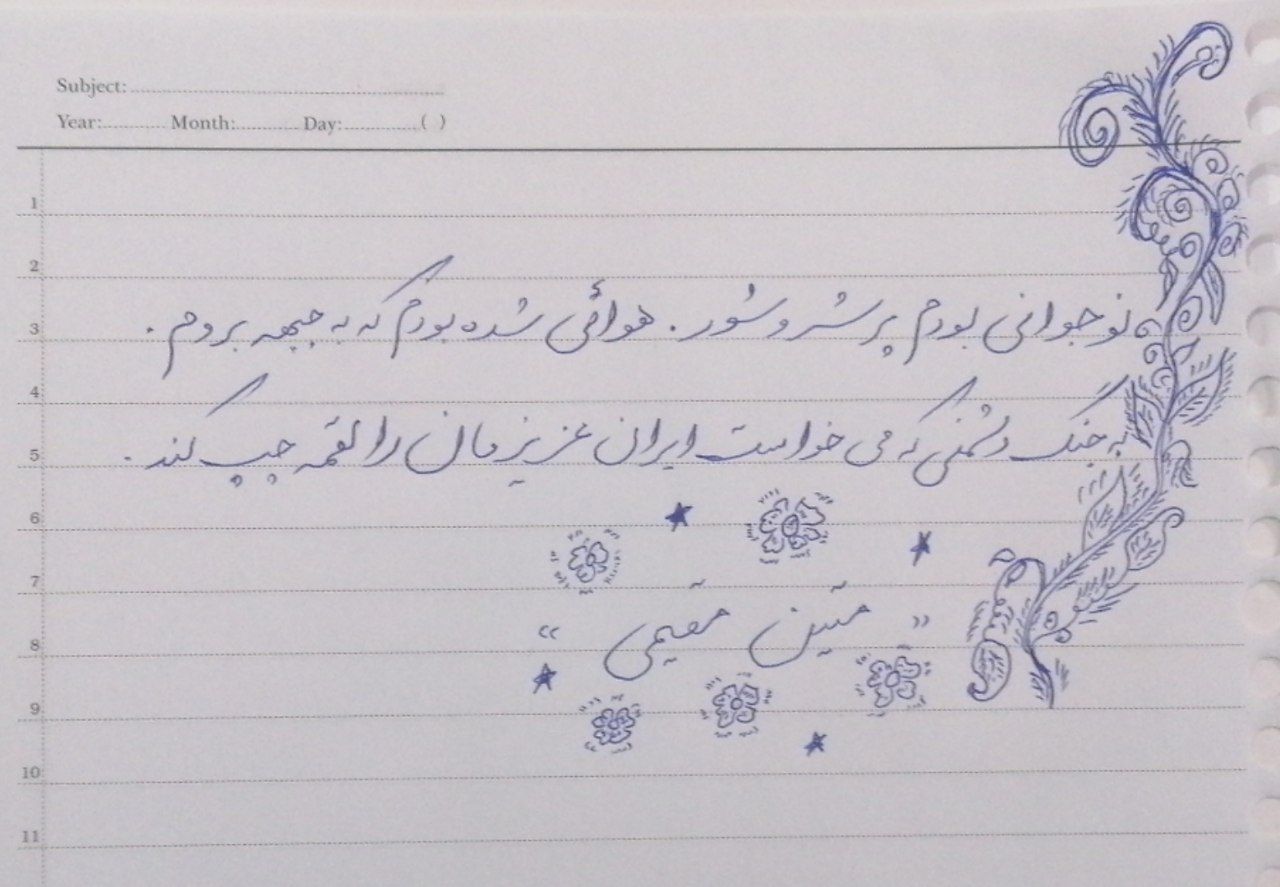 Subject:
Year: Month: Day: ( )
1
2
نوجوانی بودم پر شر و شور. هوائی شده بودم که به جبهه بروم.
3
4
به جنگ دشمنی که می خواست ایران عزیزمان را لقمه چپ کند.
5
6
7
« متین مقیمی »
8
9
10
11